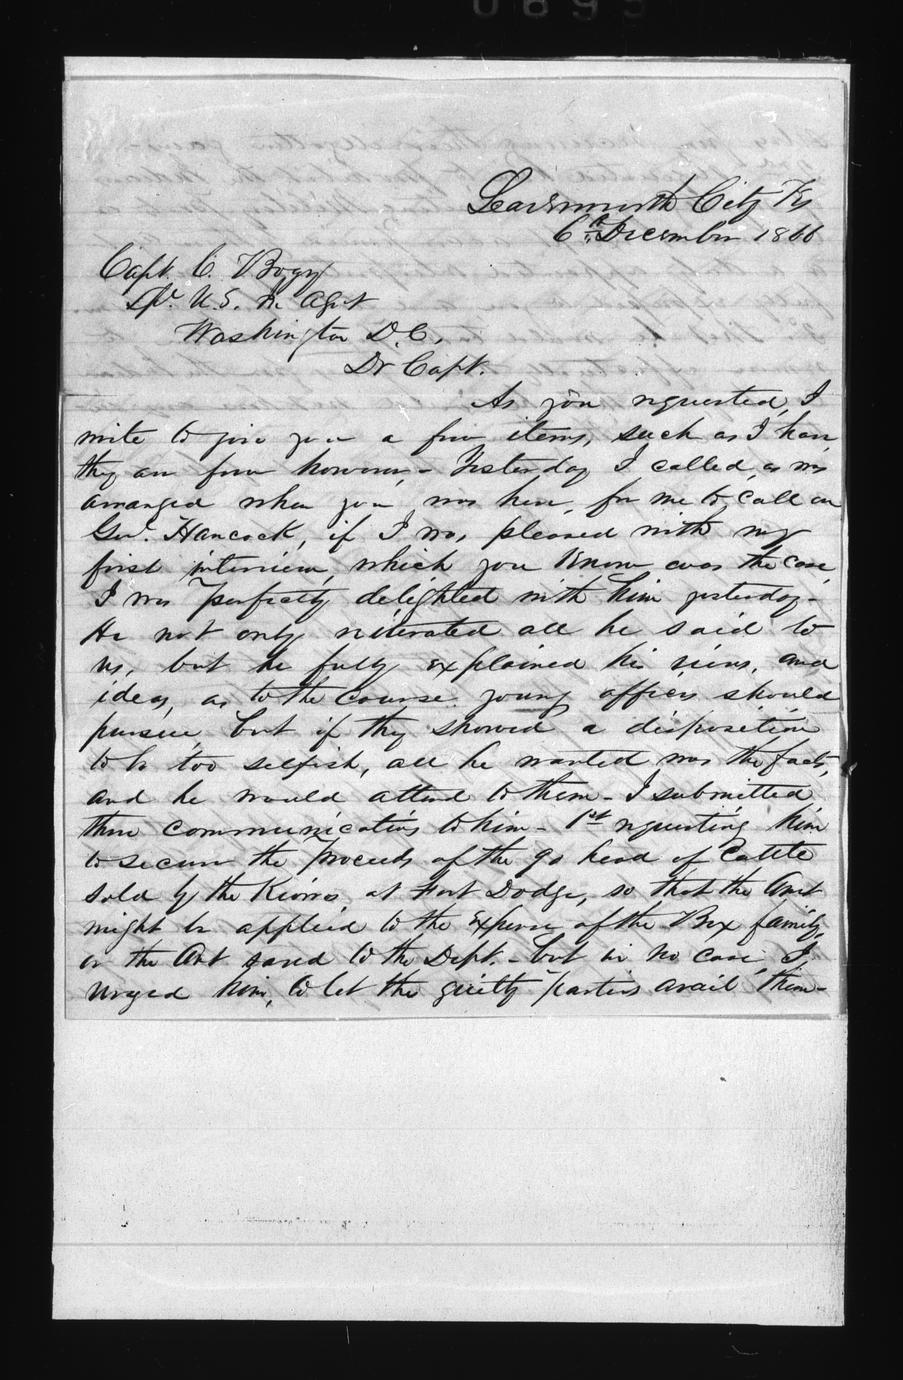 0695
Leavenworth City Ks
6th December 1866
Capt. C. Bogy
Spl. U.S. In. Agent
Washington D.C.
Dr Capt.
As you requested, I
write to give you a few items, such as I have,
they are few however, - Yesterday I called, as was
arranged when you was here, for me to call on
Genl. Hancock, if I was pleased with my
first interview, which you know was the case
I was perfectly delighted with him yesterday -
He not only reiterated all he said to
us, but he fully explained his views, and
ideas, as to the course young officers should
pursue, but if they showed a disposition
to be too selfish, all he wanted was the facts,
and he would attend to them - I submitted
three communications to him - 1st requesting him
to secure the proceeds of the 90 head of Cattle
sold by the Kiowas at Fort Dodge, so that the Amt
might be applied to the expense of the Box family,
or the Amt saved to the Dept. - but in no case, I
urged him, to let the guilty parties avail them-